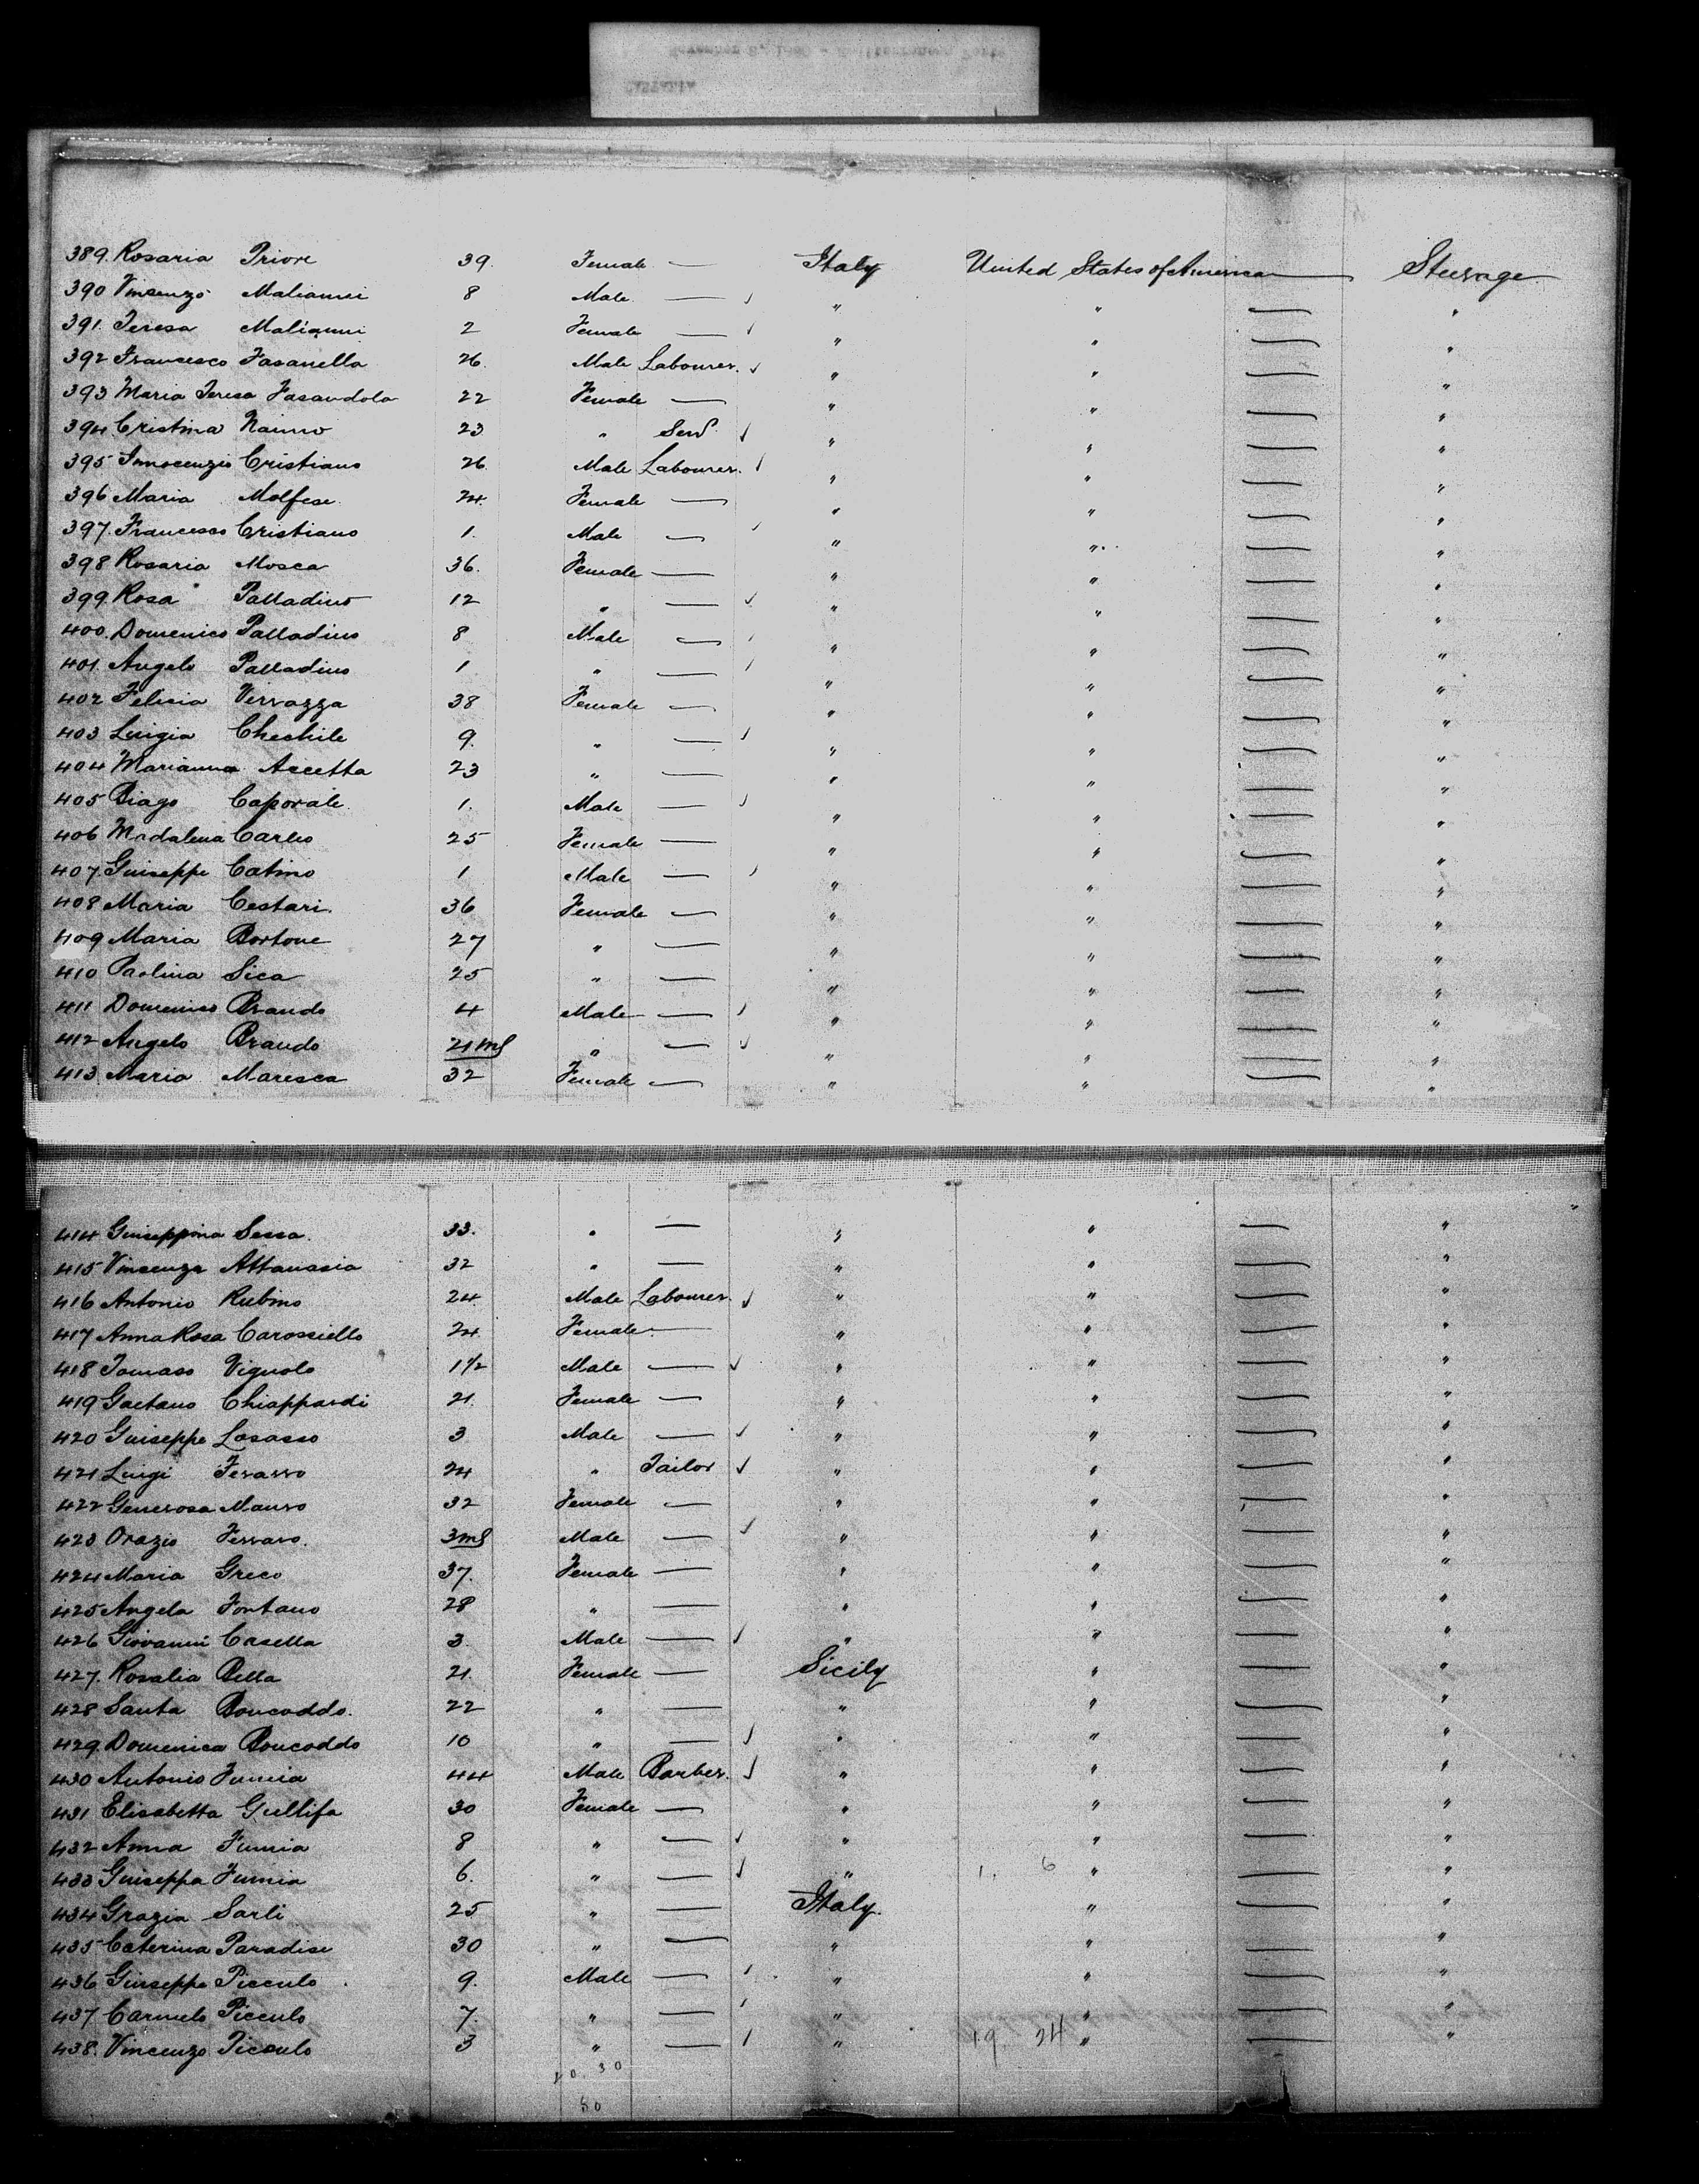 389. Rosaria Priore 39. Female — Italy United States of America — Steerage
390 Vincenzo 8 Male — ✓ " " — "
391. Teresa 2 Female — ✓ " " — "
392 Francesco Fasanella 26. Male Labourer. ✓ " " — "
393 Maria Teresa 22 Female — " " — "
394. Cristina 23 " Serv. ✓ " " — "
395 Innocenzio Cristiano 26 Male Labourer. ✓ " " — "
396 Maria Molfese 24. Female — " " — "
397. Francesco Cristiano 1. Male — ✓ " " — "
398 Rosaria Mosca 36. Female — " " — "
399. Rosa Palladino 12 " — ✓ " " — "
400. Domenico Palladino 8 Male — ✓ " " — "
401. Angelo Palladino 1 " — ✓ " " — "
402 Felicia Verrazza 38 Female — " " — "
403 Luigia Chechile 9. " — ✓ " " — "
404 Marianna Accetta 23 " — " " — "
405 Biago Caporale. 1. Male — ✓ " " — "
406 Madalena Carleo 25 Female — " " — "
407. Guiseppe Catino 1 Male — ✓ " " — "
408 Maria Cestari. 36 Female — " " — "
409 Maria Bortone 27 " — " " — "
410 Paolina Sica 25 " — " " — "
411 Domenico Brando 4 Male — ✓ " " — "
412 Angelo Brando 21 ms " — ✓ " " — "
413 Maria Maresca 32 Female — " " — "
414 Guiseppina Sessa. 33. " — " " — "
415 Vincenza Attanasia 32 " — " " — "
416 Antonio Rubino 24. Male Labourer. ✓ " " — "
417 Anna Rosa Carossiello 24. Female — " " — "
418 Tomaso Vignolo 1 1/2 Male — ✓ " " — "
419 Gaetano Chiappardi 21. Female — " " — "
420 Guiseppe Losasso 3 Male — ✓ " " — "
421 Luigi Ferarro 24 " Tailor ✓ " " — "
422 Generosa Mauro 32 Female — " " — "
423 Orazio Ferraro. 3 ms Male — ✓ " " — "
424 Maria Greco 37. Female — " " — "
425 Angela Fontano 28 " — " " — "
426 Giovanni Casella 3. Male — ✓ " " — "
427. Rosalia Bella 21. Female — Sicily " — "
428 Santa Boncoddo. 22 " — " " — "
429. Domenica Boncoddo 10 " — ✓ " " — "
430 Antonio Fumia 44 Male Barber. ✓ " " — "
431 Elisabetta Gullifa 30 Female — " " — "
432 Anna Fumia 8 " — ✓ " " — "
433 Guiseppa Fumia 6. " — ✓ " 1. 6 " — "
434 Grazia Sarli 25 " — Italy. " — "
435 Caterina Paradise 30 " — " " — "
436 Giuseppe Piccolo 9. Male — ✓ " " — "
437 Carmelo Piccolo 7. " — ✓ " " — "
438. Vincenzo Piccolo 3 " — ✓ " 19. 24 " — "
20. 30
50